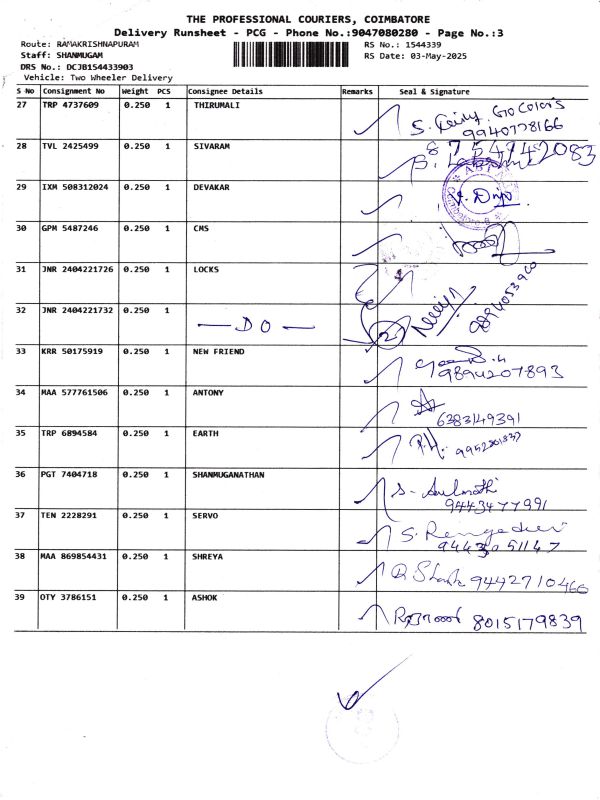 THE PROFESSIONAL COURIERS, COIMBATORE
Delivery Runsheet - PCG - Phone No.:9047080280 - Page No.:3
Route: RAMAKRISHNAPURAM
Staff: SHANMUGAM
DRS No.: DCJB154433903
Vehicle: Two Wheeler Delivery
RS No.: 1544339
RS Date: 03-May-2025
S No Consignment No Weight PCS Consignee Details Remarks Seal & Signature
27 TRP 4737609 0.250 1 THIRUMALI
Go Colors
9940778166
28 TVL 2425499 0.250 1 SIVARAM
8754942083
29 IXM 508312024 0.250 1 DEVAKAR
30 GPM 5487246 0.250 1 CMS
31 JNR 2404221726 0.250 1 LOCKS
9894053960
32 JNR 2404221732 0.250 1 — DO —
2
33 KRR 50175919 0.250 1 NEW FRIEND
9894207893
34 MAA 577761506 0.250 1 ANTONY
6383149391
35 TRP 6894584 0.250 1 EARTH
P.H.
36 PGT 7404718 0.250 1 SHANMUGANATHAN
9443477991
37 TEN 2228291 0.250 1 SERVO
9443051147
38 MAA 869854431 0.250 1 SHREYA
9442710460
39 OTY 3786151 0.250 1 ASHOK
8015179839